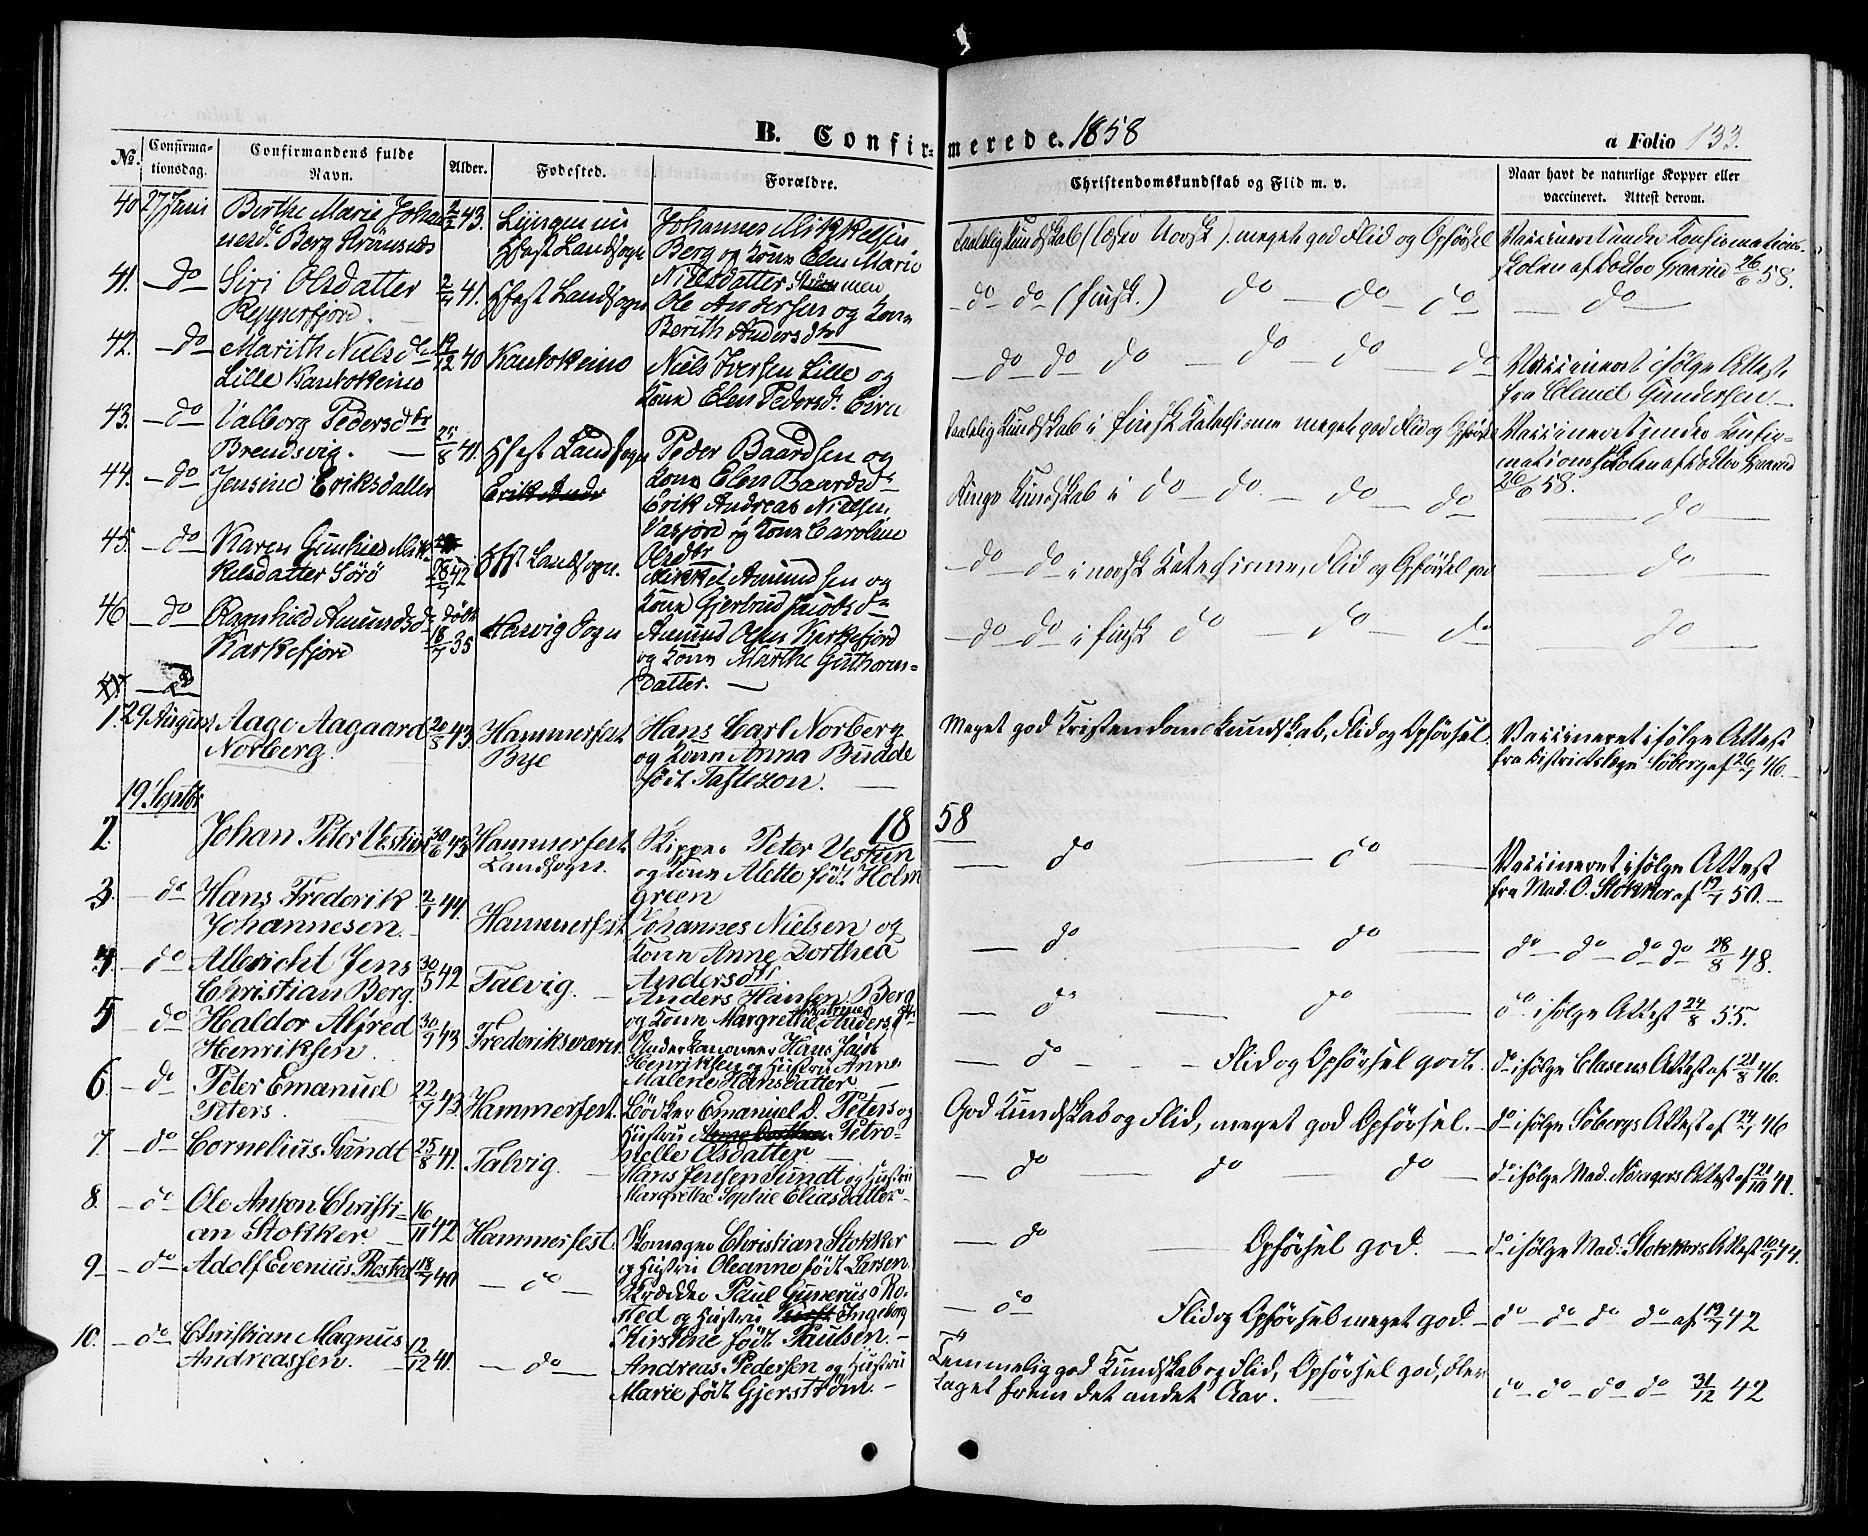 B. Confirmerede. 1858
a Folio 133.
No.
Confirma-
tionsdag.
Confirmandens fulde
Navn.
Alder.
Fødested.
Forældre.
Christendomskundskab og Flid m. v.
Naar havt de naturlige Kopper eller
vaccineret. Attest derom.
40 27 Juni Berthe Marie Johan 2/2 43.
nesdr. Berg
Hfest Landsogn
Johannes Mikkelsen
Berg og Kone Elen Marie
Nielsdatter Strømmen
Taalelig Kundskab (læser Norsk). meget god Flid og Opførsel
Vaccineret under Konfirmations-
skolen af Doktor Graarud 26/6 58.
41. do Siri Olsdatter 41. Hfest Landsogn
Repperfjord.
Ole Andersen og Kone
Berith Andersdtr
do do (finsk.) do do do
do
42. do Marith Nielsdr. 19/12 40 Kautokeino
Lille Kautokeino
Niels Iversen Lille og
Kone Elen Pedersdr. Eira
do do do do do do
Vaccineret ifølge Attest
fra Clemet Gundersen.
43. do Valborg Pedersdtr 25/8 41. Hfest Landsogn
Brendsvig.
Peder Baardsen og
Kone Elen Baardsdr
Taalelig Kundskab i finsk Katechisme meget god Flid og Opførsel
Vaccineret under Konfir-
mationsskolen af Doktor Graarud
26/6 58.
44. do Jensine Eriksdatter
Erik Andreas Nielsen
og Kone Caroline
Olsdtr
Ringe Kundskab i do do do do
do
45. do Karen Mik-
kelsdatter Sørø 42 Hfst Landsogn.
Mikkel Amundsen og
Kone Gjertrud Jacobsdr
do do i norsk Katechisme, Flid og Opførsel god
do
46 do Ragnhild Amundsdr. døbt 18/7 35 Hasvig Sogn
Karkefjord
Amund Olsen Karkefjord
og Kone Marthe Guthorms-
datter.
do do i finsk do do do
do
1. 29 August Aage Aagaard 20/5 43. Hammerfest
Norberg. Bye
Hans Carl Norberg
og Kone Anna Budde
født Taftezon.
Meget god Kristendomskundskab, Flid og Opførsel.
Vaccineret ifølge Attest
fra Districtslæge Søberg af 26/7 46.
19 Septbr.
1858
2. Johan Peter Vestun 30/6 43 Hammerfest
Landsogn.
Skipper Peter Vestun
og Kone Alette født Holm
green
do do
Vaccineret ifølge Attest
fra Mad. O. Stokker af 19/7 50.
3. do Hans Frederik 2/1 44. Hammerfest
Johannesen.
Johannes Nielsen og
Kone Anne Dorthea
Andersdtr
do do
do do do do 28/8 48.
4. do Albricht Jens 30/5 42 Talvig.
Christian Berg.
Anders Hansen Berg
og Kone Margrethe Andersdtr
do do
do. ifølge Attest 24/8 55.
5 do Haldor Alfred 30/1 43 Frederiksværn.
Henriksen.
Underkanoneer Hans Jacob
Henriksen og Hustru Anne
Malene Hansdatter
do Flid og Opførsel godt.
do ifølge Clasens Attest af 21/8 46.
6. do Peter Emanuel 22/7 43. Hammerfest.
Peters.
Bødker Emanuel D. Peters og
Hustru Petro-
nelle Olsdatter
God Kundskab og Flid, meget god Opførsel.
do ifølge Søbergs Attest af 24/7 46
7. do Cornelius Sundt 25/8 41. Talvig.
Hans Jensen Sundt og Hustru
Margrethe Sophie Eliasdatter
do do do
do ifølge Mad. Noragers Attest af 21/10 41.
8. do Ole Anton Christi- 16/11 42 Hammerfest.
an Stokker
Skomager Christian Stokker
og Hustru Oleanne født Larsen
do Opførsel god.
do ifølge Mad. Stokkers Attest 10/7 44.
9 do Adolf Evenius Rosted 18/7 40 do
Skrædder Paul Gunerus Ro-
sted og Hustru Ingeborg
Kirstine født Paulsen.
do Flid og Opførsel meget god.
do do do do af 19/7 42
10. do Christian Magnus 12/12 41. do
Andreassen.
Andreas Pedersen og Hustru
Marie født Gjerstrøm.
Temmelig god Kundskab og Flid, Opførsel god,
taget frem det andet Aar.
do do do do 31/12 42